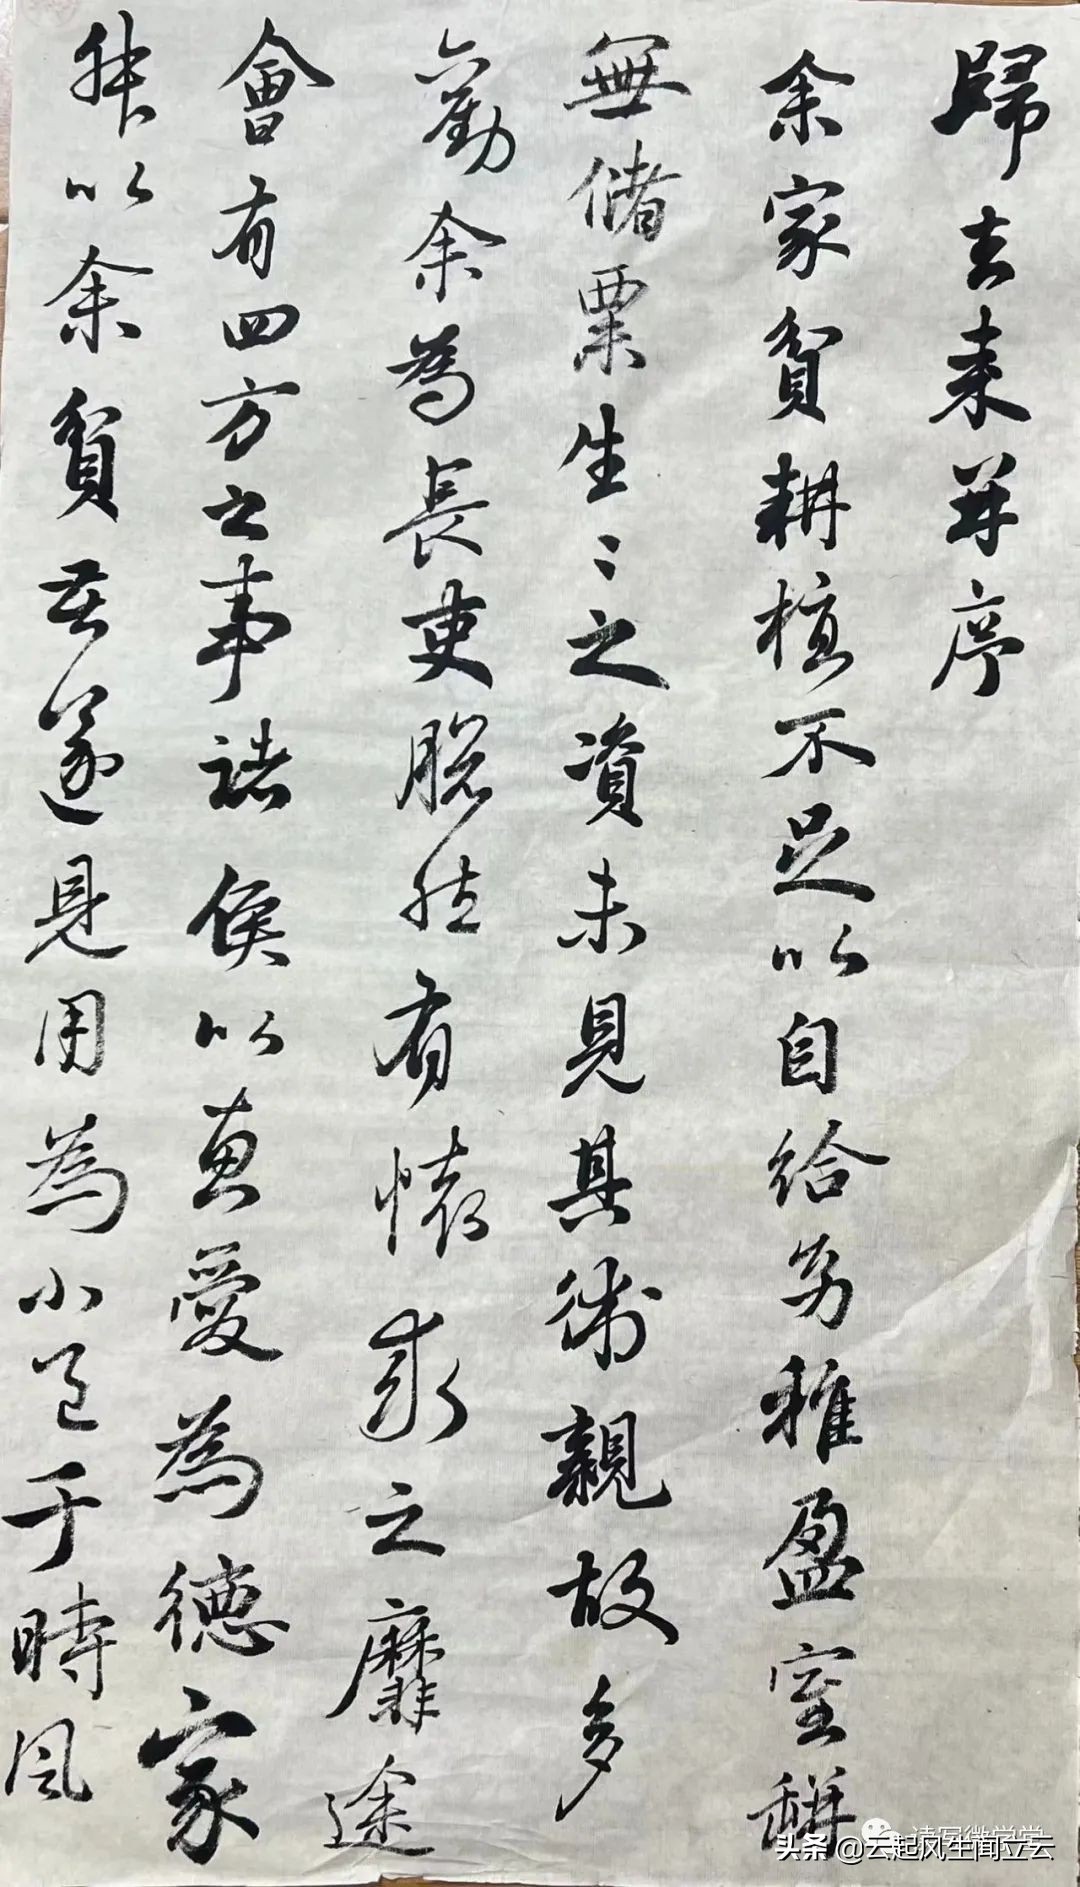 歸去来并序
余家貧耕植不足以自給幼稚盈室缾
無儲粟生〻之資未見其術親故多
勸余為長吏脱然有懷求之靡途
會有四方之事諸侯以惠愛為德家
叔以余貧苦遂見用為小邑于時風
读写微学堂
头条@云起风生闻立云